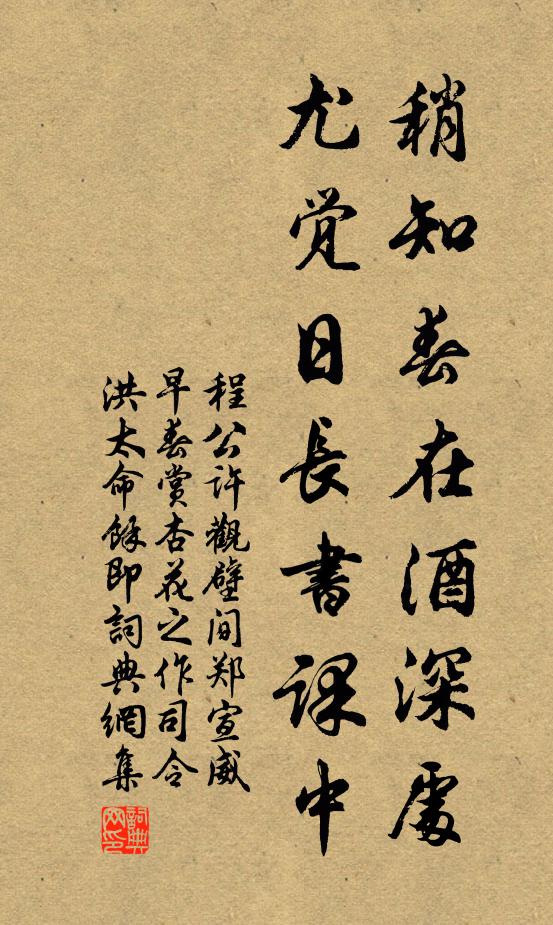 稍知春在酒深處
尤覺日長書課中
程公許觀壁间郑宣威
早春賞杏花之作司令
洪太命餘即詞典網集
詞典网印